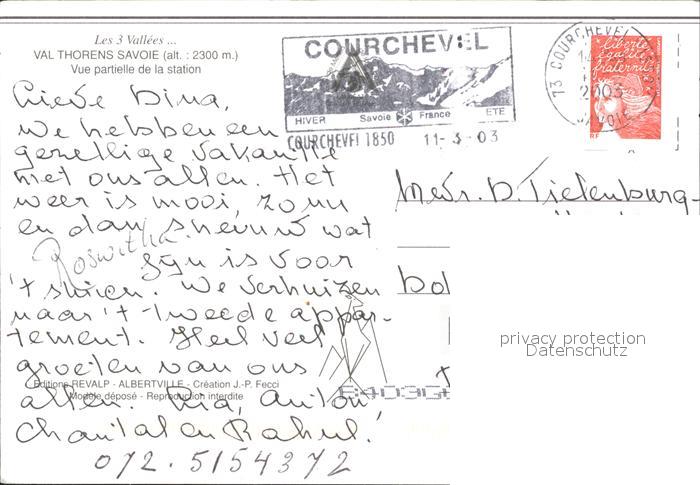 Les 3 Vallées ...
VAL THORENS SAVOIE (alt. : 2300 m.)
Vue partielle de la station
COURCHEVEL
HIVER Savoie France ETE
COURCHEVEL 1850 11-3-03
73 COURCHEVEL
2003
SAVOIE
liberté
égalité
fraternité
RF
Lieve Dina,
we hebben een
gezellige vakantie
met ons allen. Het
weer is mooi, zo nu
en dan sneeuw wat
Roswitha
fijn is voor
't skiën. We verhuizen
naar 't tweede appar-
tement. Heel veel
groeten van ons
allen. Ria, Anton
Chantal en Rahul.
072.5154372
Editions REVALP - ALBERTVILLE - Création J.-P. Fecci
Modèle déposé - Reproduction interdite
Mevr. D. Tielenburg-
privacy protection
Datenschutz